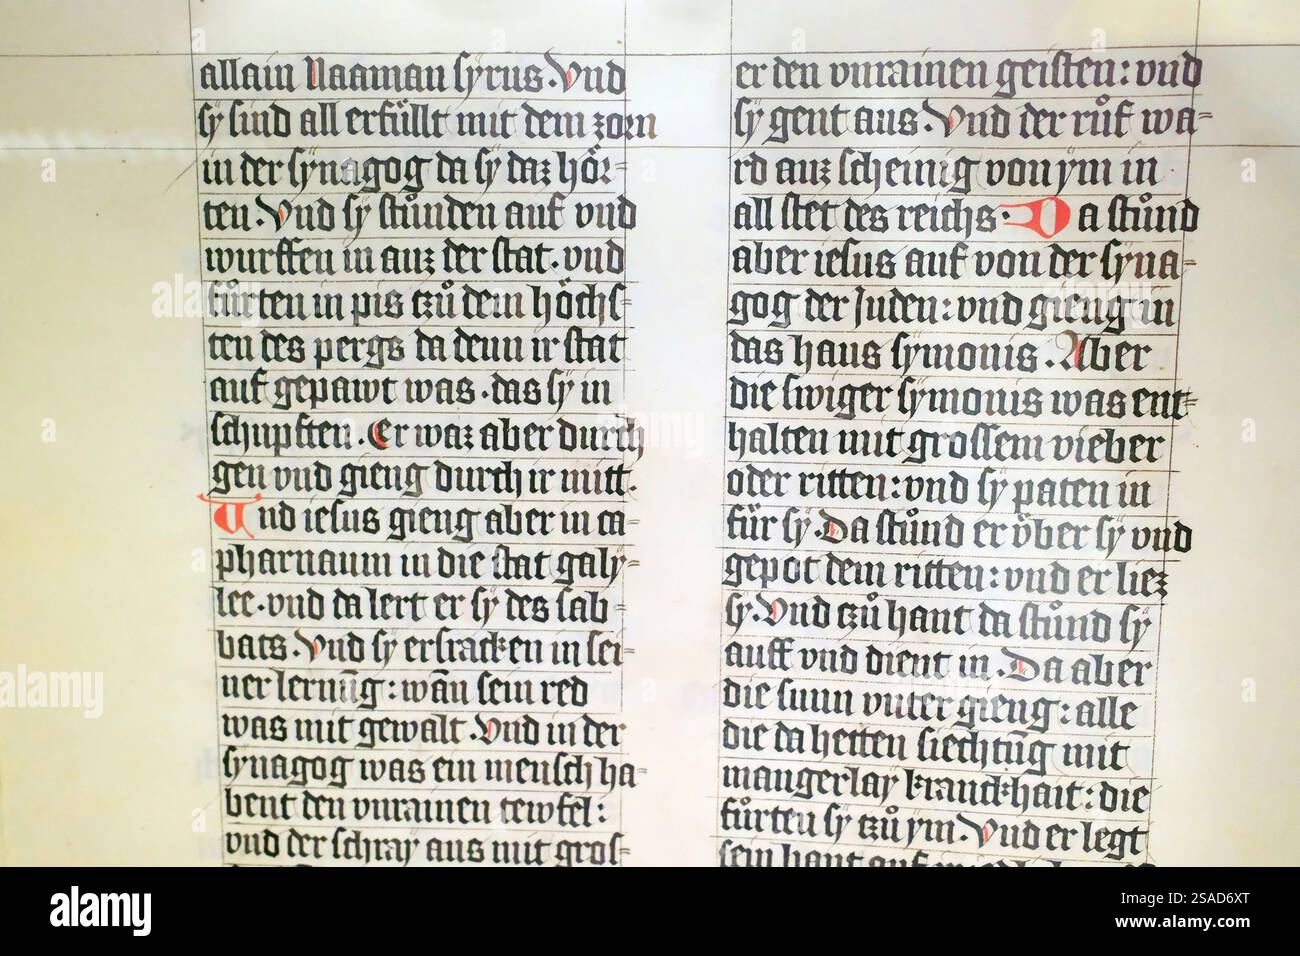 allain Naaman syrus. Vnd
sÿ sind all erfüllt mit dem zorn
in der sÿnagog da sÿ daz hör=
ten. Vnd sÿ stůnden auf vnd
wurffen in auz der stat. vnd
fůrten in pis tzů dem höchs=
ten des pergs da denn ir stat
auf gepawt was. das sÿ in
schupften. Er waz aber durch
gen vnd gieng durch ir mitt.
Vnd iesus gieng aber in ca=
pharnaum in die stat galÿ=
lee. vnd da lert er sÿ des sab=
bats. Vnd sÿ erskracken in sei=
ner lernūg: wān sein red
was mit gewalt. Vnd in der
sÿnagog was ein mensch ha=
bent den vnrainen tewfel:
vnd der schraÿ aus mit gros=
er den vnrainen geisten: vnd
sÿ gent aus. Vnd der růf wa=
rd auz scheinig von ÿm in
all stet des reichs. Da stůnd
aber iesus auf von der sÿna=
gog der Juden: vnd gieng in
das haus sÿmonis. Aber
die swiger sÿmonis was ent=
halten mit grossem vieber
oder ritten: vnd sÿ paten in
für sÿ. Da stůnd er über sÿ vnd
gepot dem ritten: vnd er liez
sÿ. Vnd tzů hant da stůnd sÿ
auff vnd dient in. Da aber
die sunn vnter gieng: alle
die da hetten siechtūg mit
mangerlaÿ kranckhait: die
fůrten sÿ tzů ÿm. Vnd er legt
sein hant auf
alamy
alamy
Image ID: 2SAD6XT
www.alamy.com